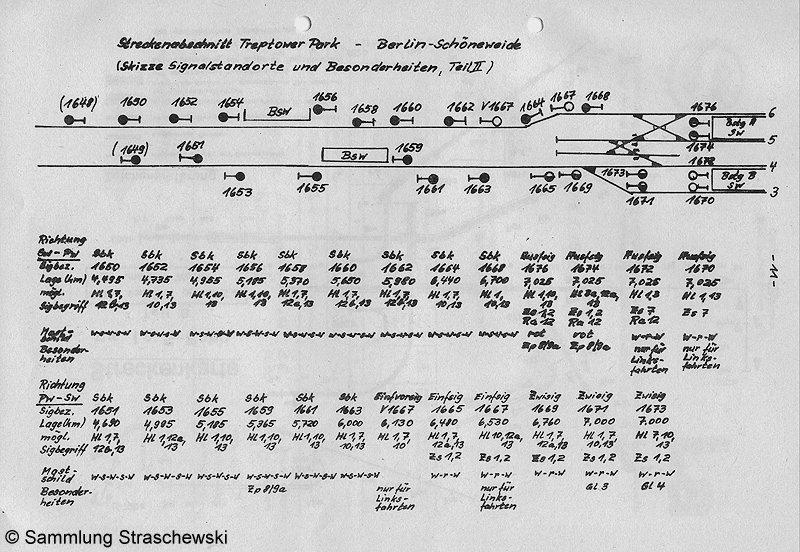 Streckenabschnitt Treptower Park - Berlin-Schöneweide
(Skizze Signalstandorte und Besonderheiten, Teil II)
(1648) 1650 1652 1654 BSW 1656 1658 1660 1662 V1667 1664 1667 1668 1676 6
Bstg A
SW
1674 5
(1649) 1651 BSW 1659 1672 4
1653 1655 1661 1663 1665 1669 1673 1671 1670 Bstg B
SW
3
- 11 -
Richtung
SW-PW Sbk Sbk Sbk Sbk Sbk Sbk Sbk Sbk Sbk Ausfsig Ausfsig Ausfsig Ausfsig
Sigbez. 1650 1652 1654 1656 1658 1660 1662 1664 1668 1676 1674 1672 1670
Lage (km) 4,495 4,735 4,985 5,185 5,370 5,650 5,980 6,440 6,700 7,025 7,025 7,025 7,025
mögl. Hl 1,7, Hl 1,7, Hl 1,10, Hl 1,10, Hl 1,7, Hl 1,7, Hl 1,7, Hl 1,7, Hl 1,10, Hl 1,10, Hl 3 Hl 1,13
Sigbegriff 10,13 13 13 12a,13 10,13 10,13 13 13
Zs 1,2 Zs 1,2 Zs 7 Zs 7
Ra 12 Ra 12 Ra 12
Mast-
schild w-s-w-s-w w-s-w-s-w w-s-w-s-w w-s-w-s-w w-s-w-s-w w-s-w-s-w w-s-w-s-w w-s-w-s-w w-s-w-s-w rot rot w-r-w w-r-w
Besonder-
heiten Zp 8/9a Zp 8/9a nur für
Links-
fahrten nur für
Links-
fahrten
Richtung
PW-SW Sbk Sbk Sbk Sbk Sbk Sbk Einfvorsig Einfsig Einfsig Zwisig Zwisig Zwisig
Sigbez. 1651 1653 1655 1659 1661 1663 V1667 1665 1667 1669 1671 1673
Lage (km) 4,690 4,985 5,185 5,365 5,720 6,000 6,130 6,480 6,530 6,760 7,000 7,000
mögl. Hl 1,7, Hl 1,12a, Hl 1,10, Hl 1,10, Hl 1,10, Hl 1,7, Hl 1,7, Hl 1,7, Hl 10,12a, Hl 1,7, Hl 1,7, Hl 7,10,
Sigbegriff 12a,13 13 13 13 13 10,13 10 12a,13 13 12a,13 10,13 13
Zs 1,2 Zs 1,2 Zs 1,2 Zs 1,2 Zs 1,2
Mast-
schild w-s-w-s-w w-s-w-s-w w-s-w-s-w w-s-w-s-w w-s-w-s-w w-s-w-s-w w-r-w w-r-w w-r-w w-r-w w-r-w
Besonder-
heiten Zp 8/9a nur für
Links-
fahrten nur für
Links-
fahrten Gl 3 Gl 4
© Sammlung Straschewski